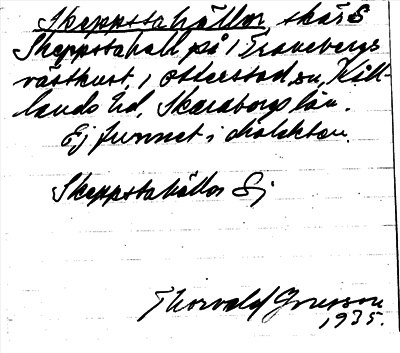 Skeppstahällor, skär S
Skeppstahall på i Traneberg
västkust, i Otterstad sn, Kål-
lands hd, Skaraborgs län.
Ej funnet i dialekten.
Skeppstahällor Sj
Thorvald Jonsson
1935.